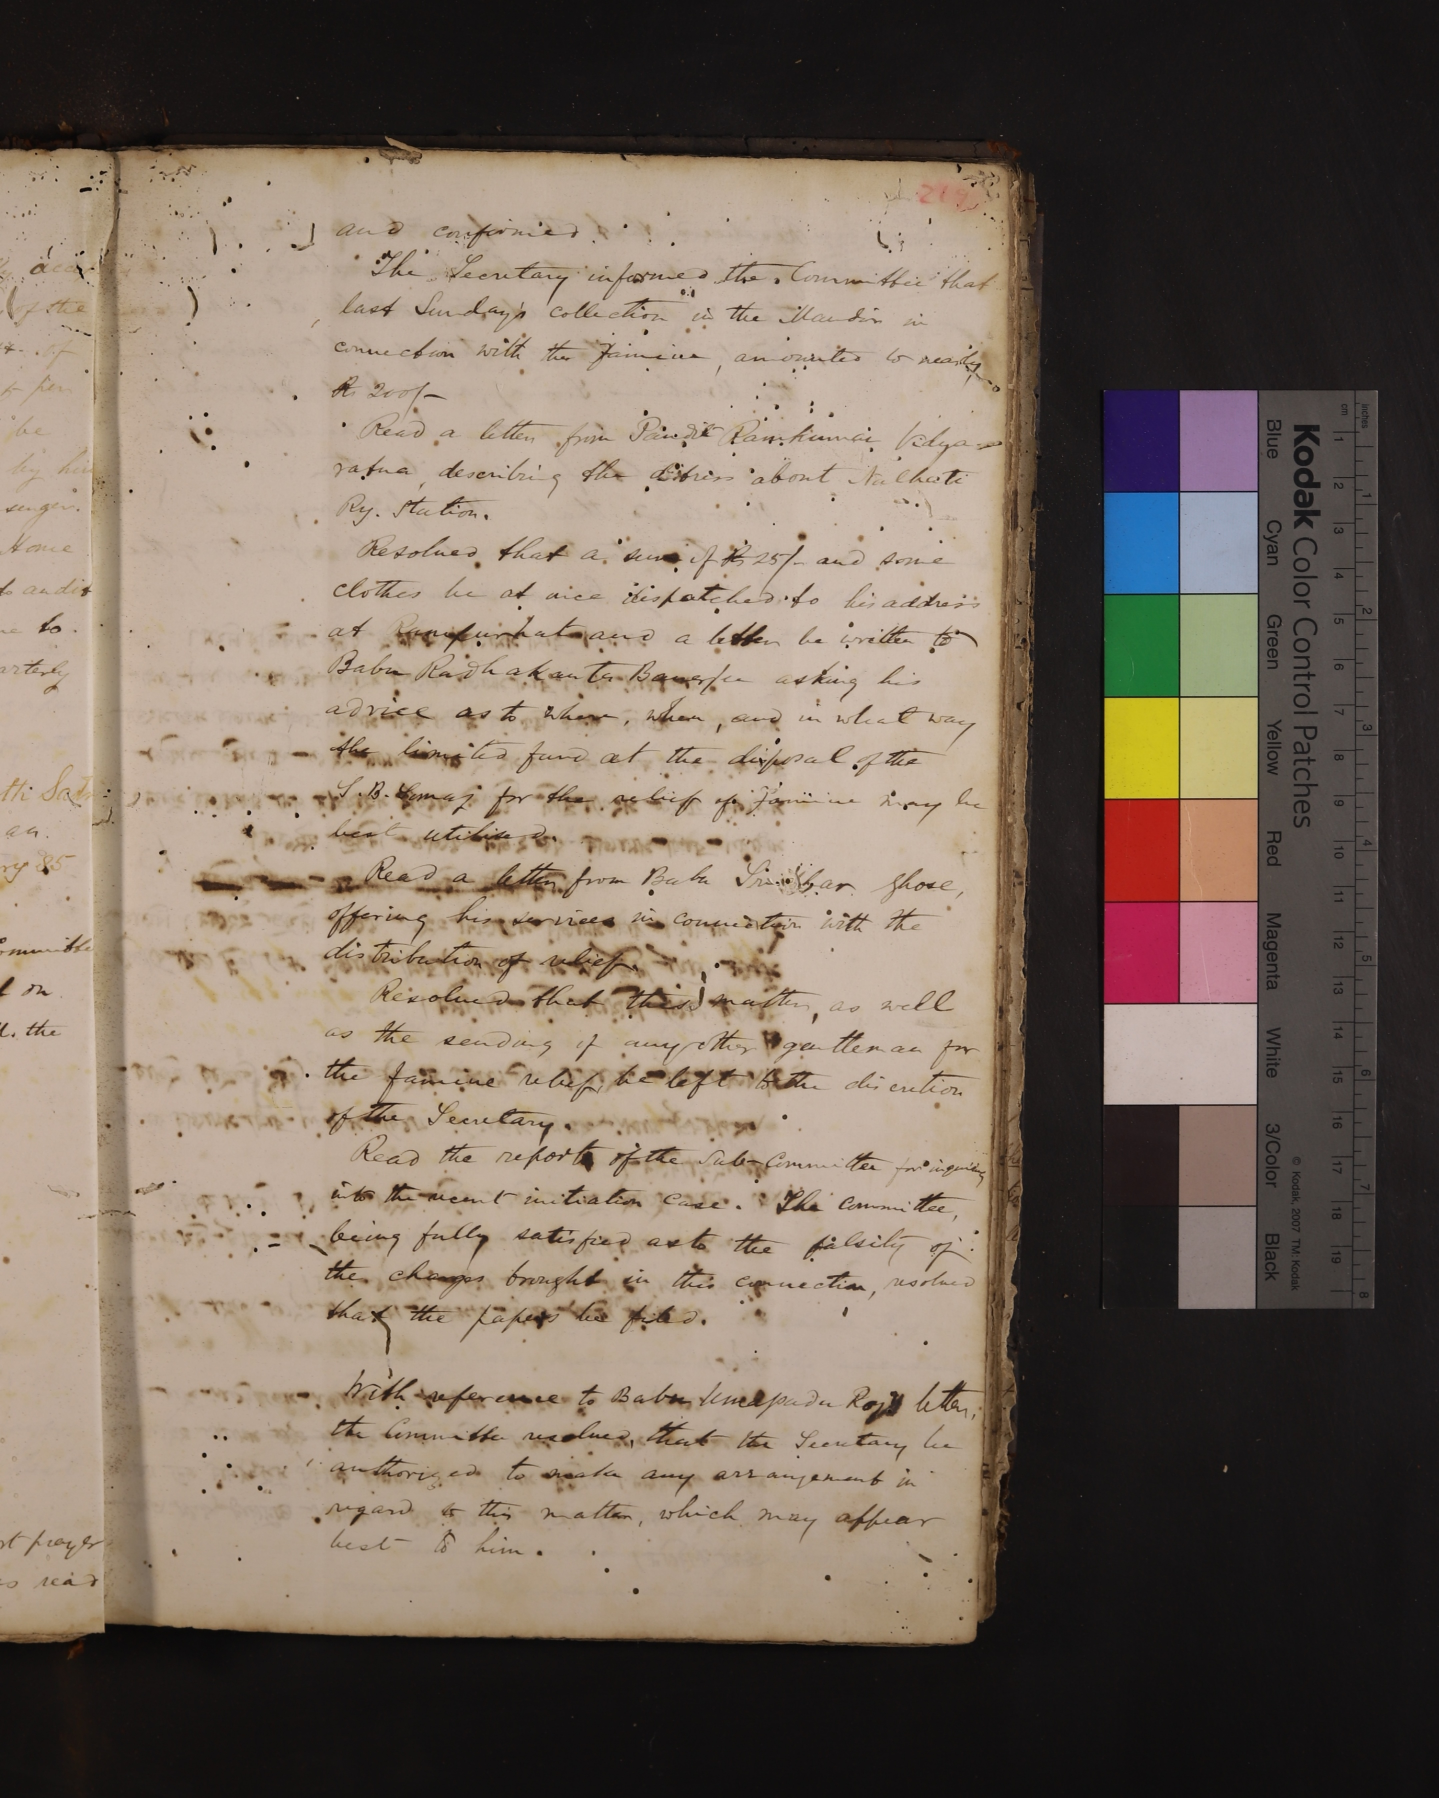 and confirmed.
The Secretary informed the Committee that
last Sunday's collection in the Mandir in
connection with the Famine, amounted to nearly
Rs 200/-
Read a letter from Pandit Ramkumar Vidya=
ratna, describing the distress about Nalhati
Ry. Station.
Resolved that a sum of Rs 25/- and some
clothes be at once dispatched to his address
at Rampurhat and a letter be written to
Babu Radhakanta Banerjee asking his
advice as to where, when, and in what way
the limited fund at the disposal of the
S. B. Samaj for the relief of Famine may be
best utilised.
Read a letter from Babu Ghose,
offering his services in connection with the
distribution of relief.
Resolved that this matter, as well
as the sending of any other gentleman for
the famine relief, be left to the discretion
of the Secretary.
Read the report of the Sub-Committee for inquiry
into the recent initiation case. The Committee,
being fully satisfied as to the falsity of
the charges brought in this connection, resolved
that the papers be filed.
With reference to Babu Umapada Roy's letter,
the Committee resolved, that the Secretary be
authorized to make any arrangement in
regard to this matter, which may appear
best to him.
Kodak Color Control Patches
Blue
Cyan
Green
Yellow
Red
Magenta
White
3/Color
Black
© Kodak, 2007 TM: Kodak
cm 1 2 3 4 5 6 7 8 9 10 11 12 13 14 15 16 17 18 19
inches 1 2 3 4 5 6 7 8